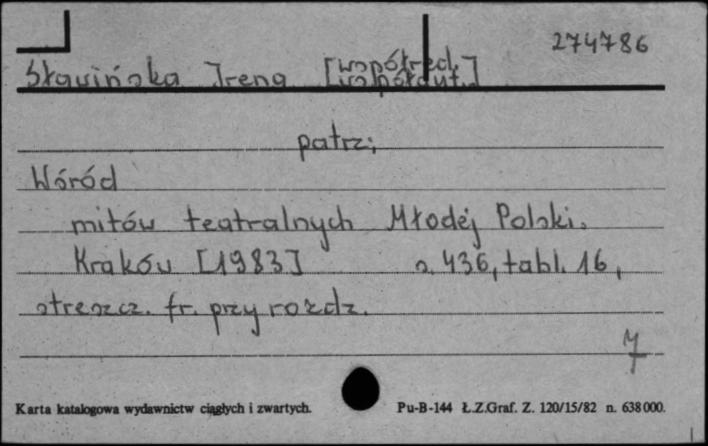 274786
Sławińska Irena [współred.
współaut.]
patrz;
Wśród
mitów teatralnych Młodej Polski.
Kraków [1983] s. 436, tabl. 16,
streszcz. fr. przy rozdz.
Karta katalogowa wydawnictw ciągłych i zwartych. Pu-B-144 Ł.Z.Graf. Z. 120/15/82 n. 638000.